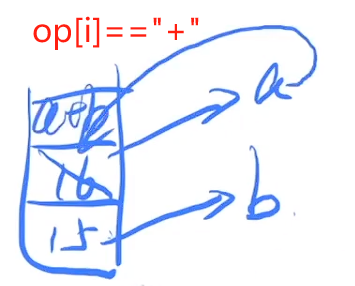 op[i]=="+"
a+b
a
16
15
b